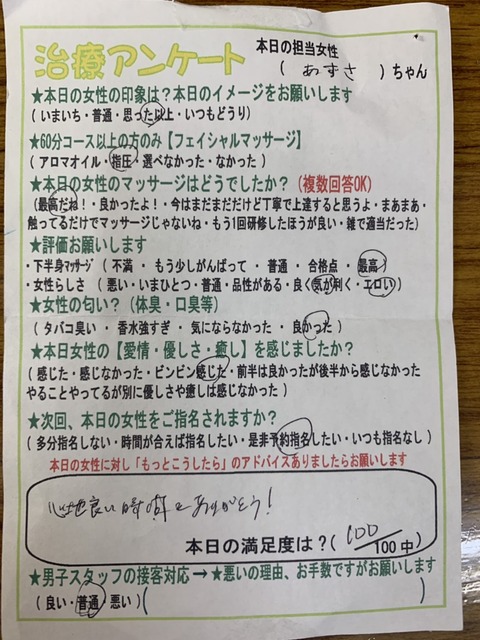 治療アンケート
本日の担当女性
( あずさ )ちゃん
★本日の女性の印象は？本日のイメージをお願いします
( いまいち・普通・思った以上・いつもどうり)
★60分コース以上の方のみ【フェイシャルマッサージ】
( アロマオイル・指圧・選べなかった・なかった )
★本日の女性のマッサージはどうでしたか？(複数回答OK)
(最高だね！・良かったよ！・今はまだまだだけど丁寧で上達すると思うよ・まあまあ・
触ってるだけでマッサージじゃないね・もう1回研修したほうが良い・雑で適当だった)
★評価お願いします
・下半身マッサージ ( 不満 ・ もう少しがんばって ・ 普通 ・ 合格点 ・ 最高 )
・女性らしさ ( 悪い・いまひとつ・普通・品性がある・良く気が利く・エロい )
★女性の匂い？(体臭・口臭等)
( タバコ臭い ・ 香水強すぎ ・ 気にならなかった ・ 良かった )
★本日女性の【愛情・優しさ・癒し】を感じましたか？
( 感じた・感じなかった・ビンビン感じた・前半は良かったが後半から感じなかった
やることやってるが別に優しさや癒しは感じなかった )
★次回、本日の女性をご指名されますか？
( 多分指名しない・時間が合えば指名したい・是非予約指名したい・いつも指名なし )
本日の女性に対し「もっとこうしたら」のアドバイスありましたらお願いします
心地良い時間をありがとう!
本日の満足度は？( 100/100中)
★男子スタッフの接客対応→★悪いの理由、お手数ですがお願いします
( 良い・普通・悪い ) ( )